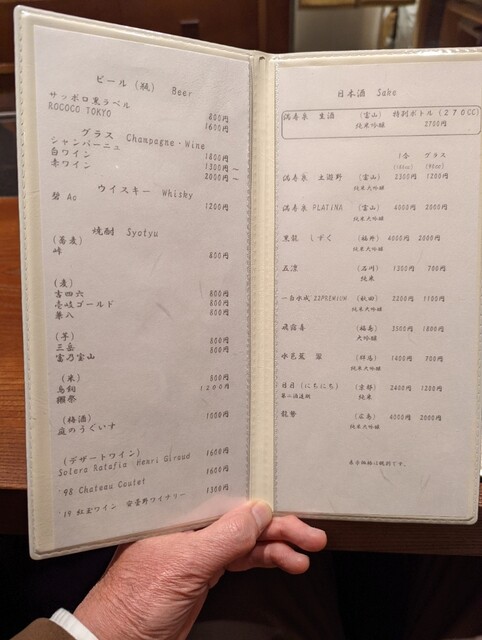 ビール (瓶) Beer
サッポロ黒ラベル 800円
ROCOCO TOKYO 1600円
グラス Champagne・Wine
シャンパーニュ 1800円
白ワイン 1300円～
赤ワイン 2000円～
ウイスキー Whisky
碧 Ao 1200円
焼酎 Syotyu
(蕎麦)
峠 800円
(麦)
吉四六 800円
壱岐ゴールド 800円
兼八 800円
(芋)
三岳 800円
富乃宝山 800円
(米)
鳥飼 800円
獺祭 1200円
(梅酒)
庭のうぐいす 1000円
(デザートワイン)
Solera Ratafia Henri Giraud 1600円
'98 Chateau Coutet 1600円
'19 紅玉ワイン 安曇野ワイナリー 1300円
日本酒 Sake
満寿泉 生酒 (富山) 特別ボトル (270CC)
純米吟醸 2700円
1合 グラス
(180cc) (90cc)
満寿泉 (富山) 2300円 1200円
純米大吟醸
満寿泉 PLATINA (富山) 4000円 2000円
純米大吟醸
黒龍 しずく (福井) 4000円 2000円
大吟醸
五凛 (石川) 1300円 700円
純米
一白水成 PREMIUM (秋田) 2200円 1100円
純米大吟醸
飛露喜 (福島) 3500円 1800円
大吟醸
水芭蕉 翠 (群馬) 1400円 700円
純米大吟醸
日日 (にちにち) (京都) 2400円 1200円
純米
龍勢 (広島) 4000円 2000円
純米大吟醸
表示価格は税別です。